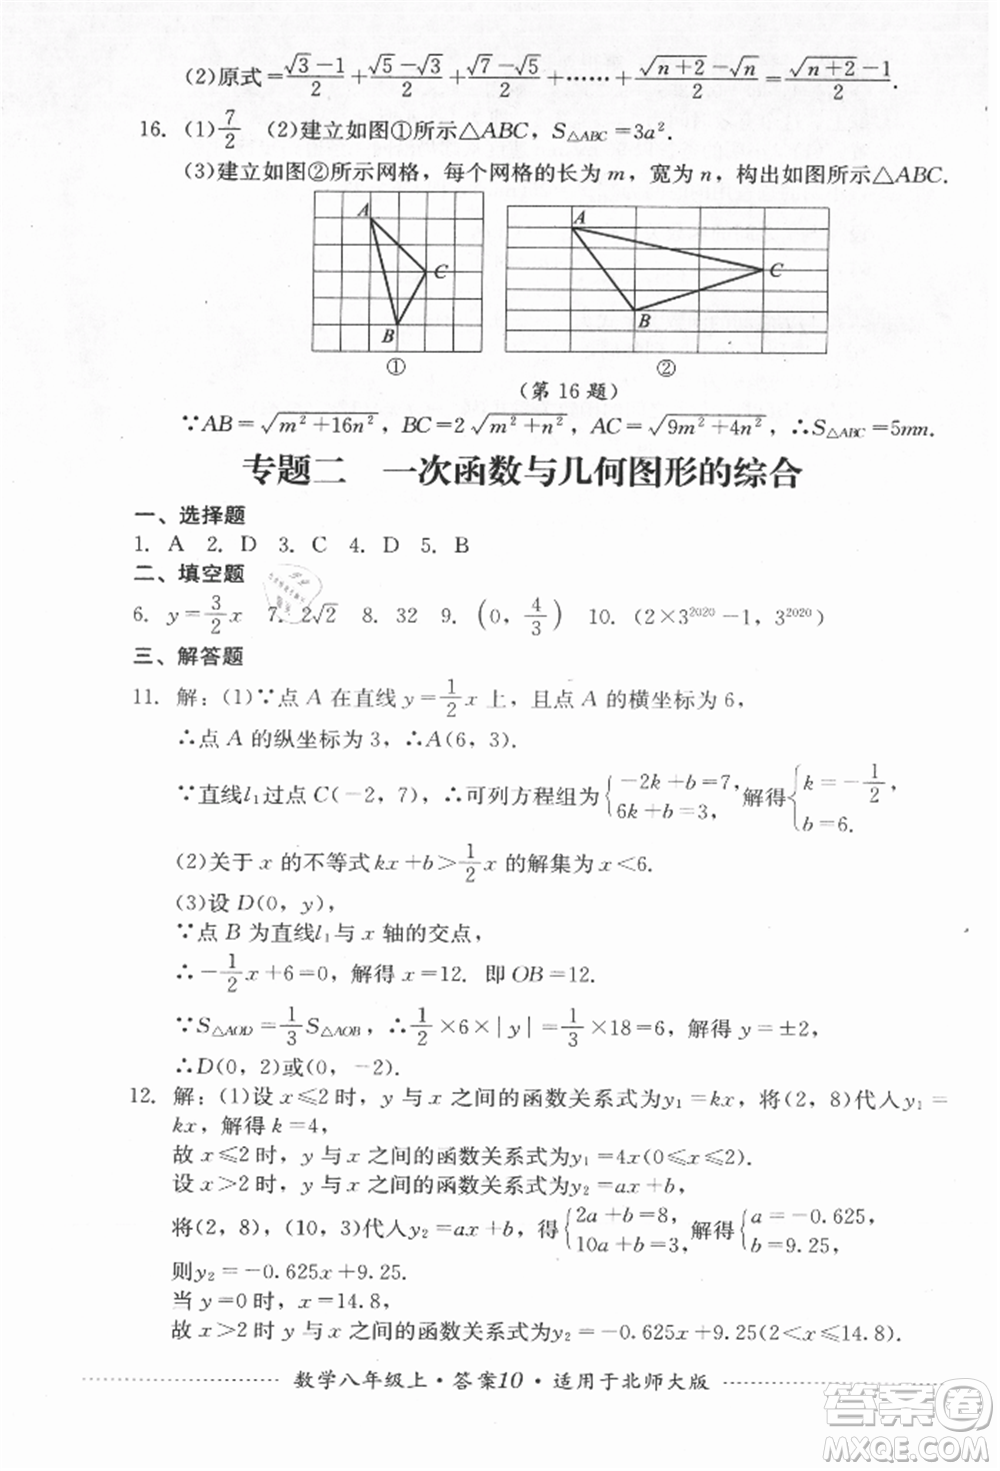 (2)原式=(√3-1)/2+(√5-√3)/2+(√7-√5)/2+……+(√(n+2)-√n)/2=(√(n+2)-1)/2.
16. (1)7/2 (2)建立如图①所示△ABC, S△ABC=3a².
(3)建立如图②所示网格, 每个网格的长为 m, 宽为 n, 构出如图所示△ABC.
A
C
B
①
A
C
B
②
(第 16 题)
∵AB=√(m²+16n²), BC=2√(m²+n²), AC=√(9m²+4n²), ∴S△ABC=5mn.
专题二 一次函数与几何图形的综合
一、选择题
1. A 2. D 3. C 4. D 5. B
二、填空题
6. y=3/2x 7. 2√2 8. 32 9. (0, 4/3) 10. (2×3²⁰²⁰-1, 3²⁰²⁰)
三、解答题
11. 解:(1)∵点 A 在直线 y=1/2x 上, 且点 A 的横坐标为 6,
∴点 A 的纵坐标为 3, ∴A(6, 3).
∵直线l₁过点 C(-2, 7), ∴可列方程组为{-2k+b=7, 6k+b=3, 解得{k=-1/2, b=6.
(2)关于 x 的不等式 kx+b>1/2x 的解集为 x<6.
(3)设 D(0, y),
∵点 B 为直线l₁与 x 轴的交点,
∴-1/2x+6=0, 解得 x=12. 即 OB=12.
∵S△AOD=1/3S△AOB, ∴1/2×6×|y|=1/3×18=6, 解得 y=±2,
∴D(0, 2)或(0, -2).
12. 解:(1)设 x≤2时, y 与 x 之间的函数关系式为y₁=kx, 将(2, 8)代人y₁=
kx, 解得 k=4,
故 x≤2 时, y 与 x 之间的函数关系式为y₁=4x(0≤x≤2).
设 x>2 时, y 与 x 之间的函数关系式为y₂=ax+b,
将(2, 8), (10, 3)代人y₂=ax+b, 得{2a+b=8, 10a+b=3, 解得{a=-0.625, b=9.25,
则y₂=-0.625x+9.25.
当 y=0 时, x=14.8,
故 x>2 时 y 与 x 之间的函数关系式为y₂=-0.625x+9.25(2<x≤14.8).
数学八年级上·答案10·适用于北师大版
答案圈
MXQE.COM